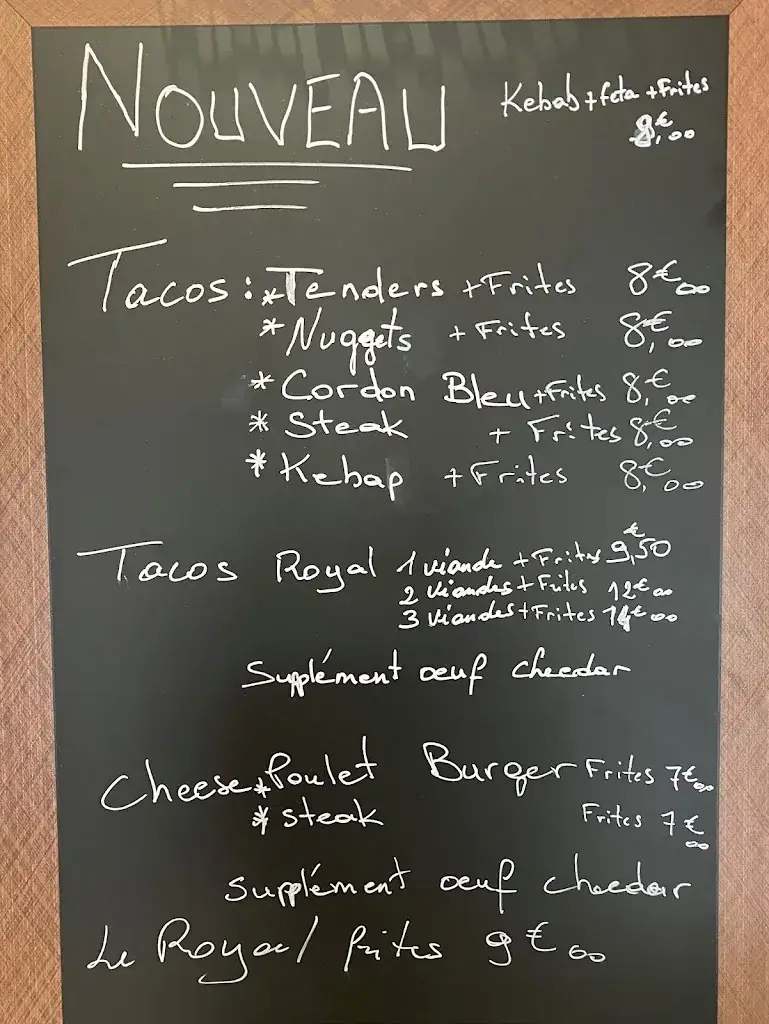 NOUVEAU
Kebab + feta + Frites
8,€00
Tacos : * Tenders + Frites 8€00
* Nuggets + Frites 8,€00
* Cordon Bleu + Frites 8,€00
* Steak + Frites 8,€00
* Kebap + Frites 8,€00
Tacos Royal 1 viande + Frites 9,50€
2 viandes + Frites 12€00
3 viandes + Frites 14€00
Supplément oeuf cheedar
Cheese * Poulet Burger Frites 7€00
* steak Frites 7€00
Supplément oeuf cheedar
Le Royal frites 9€00